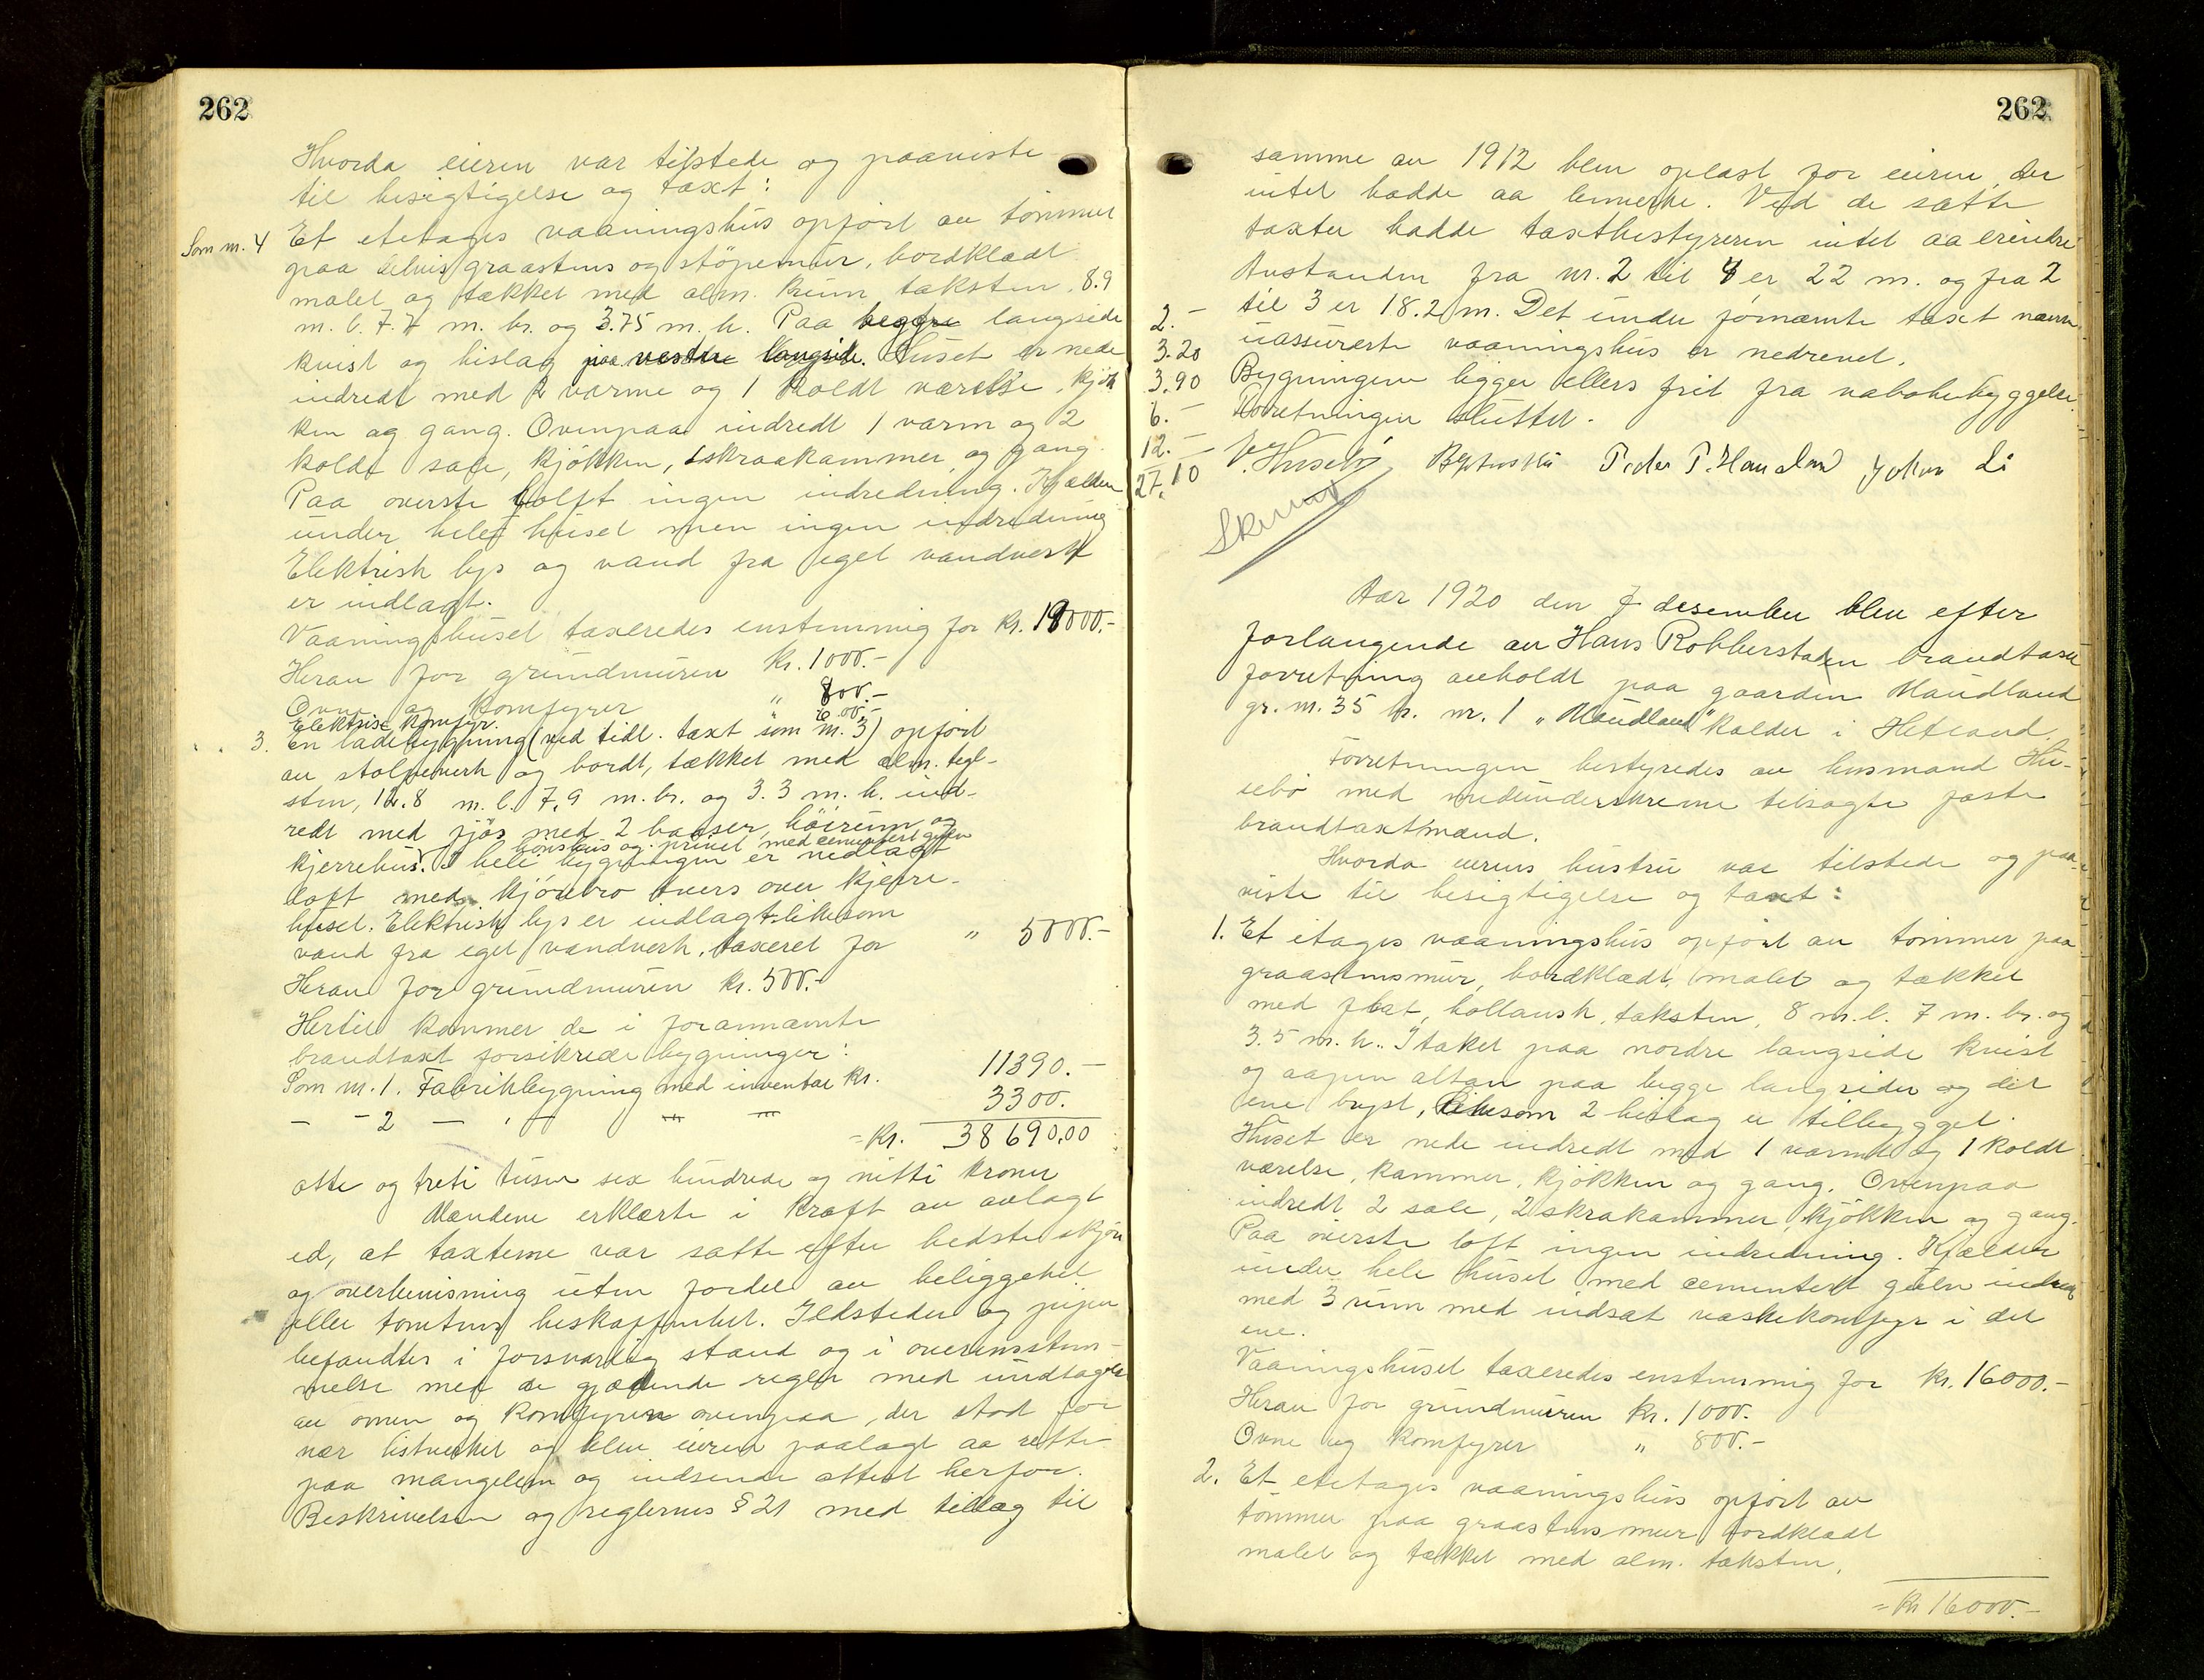 262
Hvorda eieren var tilstede og paaviste
til besigtigelse og taxt:
Som nr. 4 Et etetages vaaningshus opført av tømmer
paa delvis graastens og støpemur, bordklædt
malet og tækket med alm. krum taksten, 8.9
m. l. 7.7 m. br. og 3.75 m. h. Paa begge langside
kvist og bislag paa vestre langside. Huset er nede
indredt med 2 varme og 1 koldt værelse, kjøk
ken og gang. Ovenpaa indredt 1 varm og 2
kolde sale, kjøkken, skraakammer og gang.
Paa øverste loft ingen indredning. Kjælder
under hele huset men ingen indredning
Elektrisk lys og vand fra eget vandverk
er indlagt.
Vaaningshuset taxeredes enstemmig for kr. 19000.-
Herav for grundmuren kr. 1000.-
Ovne og komfyrer " 800.-
Elektrisk komfyr.
3. En ladebygning (ved tidl. taxt som nr. 3) opført
av stolpeverk og bordt, tækket med alm. tegl-
sten, 12.8 m. l. 7,9 m. br. og 3.3 m. h. ind-
redt med fjøs med 2 baaser, høirum og
hønsehus og privet med cementert gulv
kjerrehus. I hele bygningen er nedlagt
loft med kjørebro tvers over kjerre-
huset. Elektrisk lys er indlagt likesom
vand fra eget vandverk, taxeret for " 5000.-
Herav for grundmuren kr. 500.-
Hertil kommer de i forannæmte
brandtaxt forsikrede bygninger:
Som nr. 1. Fabrikbygning med inventar kr. 11390.-
- - 2 - " - " - " 3300.
= kr. 38690,00
otte og treti tusen sex hundrede og nitti kroner
Mændene erklærte i kraft av avlagt
ed, at taxterne var satte efter bedste skjøn
og overbevisning uten fordel av beliggenhet
eller tomtens beskaffenhet. Ildsteder og piper
befandtes i forsvarlig stand og i overensstem-
melse med de gjældende regler med undtagelse
av ovnen og komfyren ovenpaa, der stod for
nær listverket og blev eieren paalagt aa rette
paa mangelen og indsende attest herfor.
Beskrivelsen og reglernes § 21 med tillæg til
262
samme av 1912 blev oplæst for eieren, der
intet hadde aa bemerke. Ved de satte
taxter hadde taxtbestyreren intet aa erindre
Avstanden fra nr. 2 til 4 er 22 m. og fra 2
til 3 er 18.2 m. Det under fornæmte taxt nævn
uassurerte vaaningshus er nedrevet.
Bygningene ligger ellers frit fra nabobebyggelse.
Forretningen sluttet.
2.-
3.20
3.90
6.-
12.-
27.10
V. Husebø Peder P. Hauland Johan Li
Skrevet
Aar 1920 den 7 desember blev efter
forlangende av Hans Robberstaden brandtaxt
forretning avholdt paa gaarden Maudland
gr. nr. 35 br. nr. 1 "Maudland" kaldet i Hetland.
Forretningen bestyredes av husmand Hu-
sebø med medunderskrevne tilsagte faste
brandtaxtmænd.
Hvorda eierens hustru var tilstede og paa-
viste til besigtigelse og taxt:
1. Et etages vaaningshus opført av tømmer paa
graastensmur, bordklædt, malet og tækket
med flat, hollansk, taksten, 8 m. l. 7 m. br. og
3.5 m. h. I taket paa nordre langside kvist
og aapen altan paa begge langsider og det
ene bryst, likesom 2 bislag er tilbygget.
Huset er nede indredt med 1 varmt og 1 koldt
værelse, kammer, kjøkken og gang. Ovenpaa
indredt 2 sale, 2 skrakammer, kjøkken og gang.
Paa øverste loft ingen indredning. Kjælder
under hele huset med cementert gulv indredt
med 3 rum med indsat vaskekomfyr i det
ene.
Vaaningshuset taxeredes enstemmig for kr. 16000.-
Herav for grundmuren kr. 1000.-
Ovne og komfyrer " 800.-
2. Et etetages vaaningshus opført av
tømmer paa graastensmur bordklædt
malet og tækket med alm. taksten,
= kr 16000.-